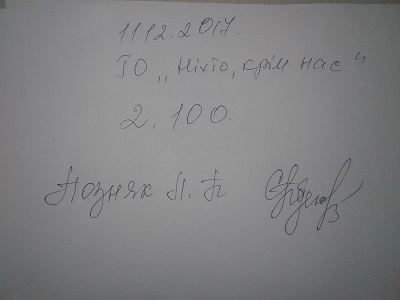 11.12.2017.
ГО „Ніхто, крім нас"
2.100.
Позняк Л. П.